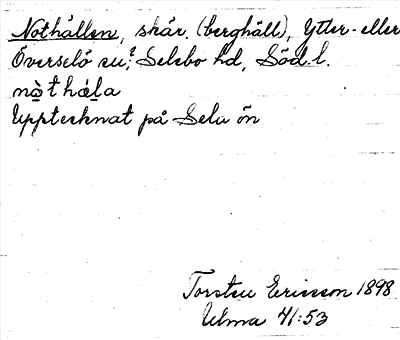 Nothällen, skär. (berghäll), Ytter- eller
Överselö sn?, Selebo hd, Söd. l.
nò̤t hä̤la
Upptecknat på Sela ön
Torsten Ericsson 1898
Ulma 41:53